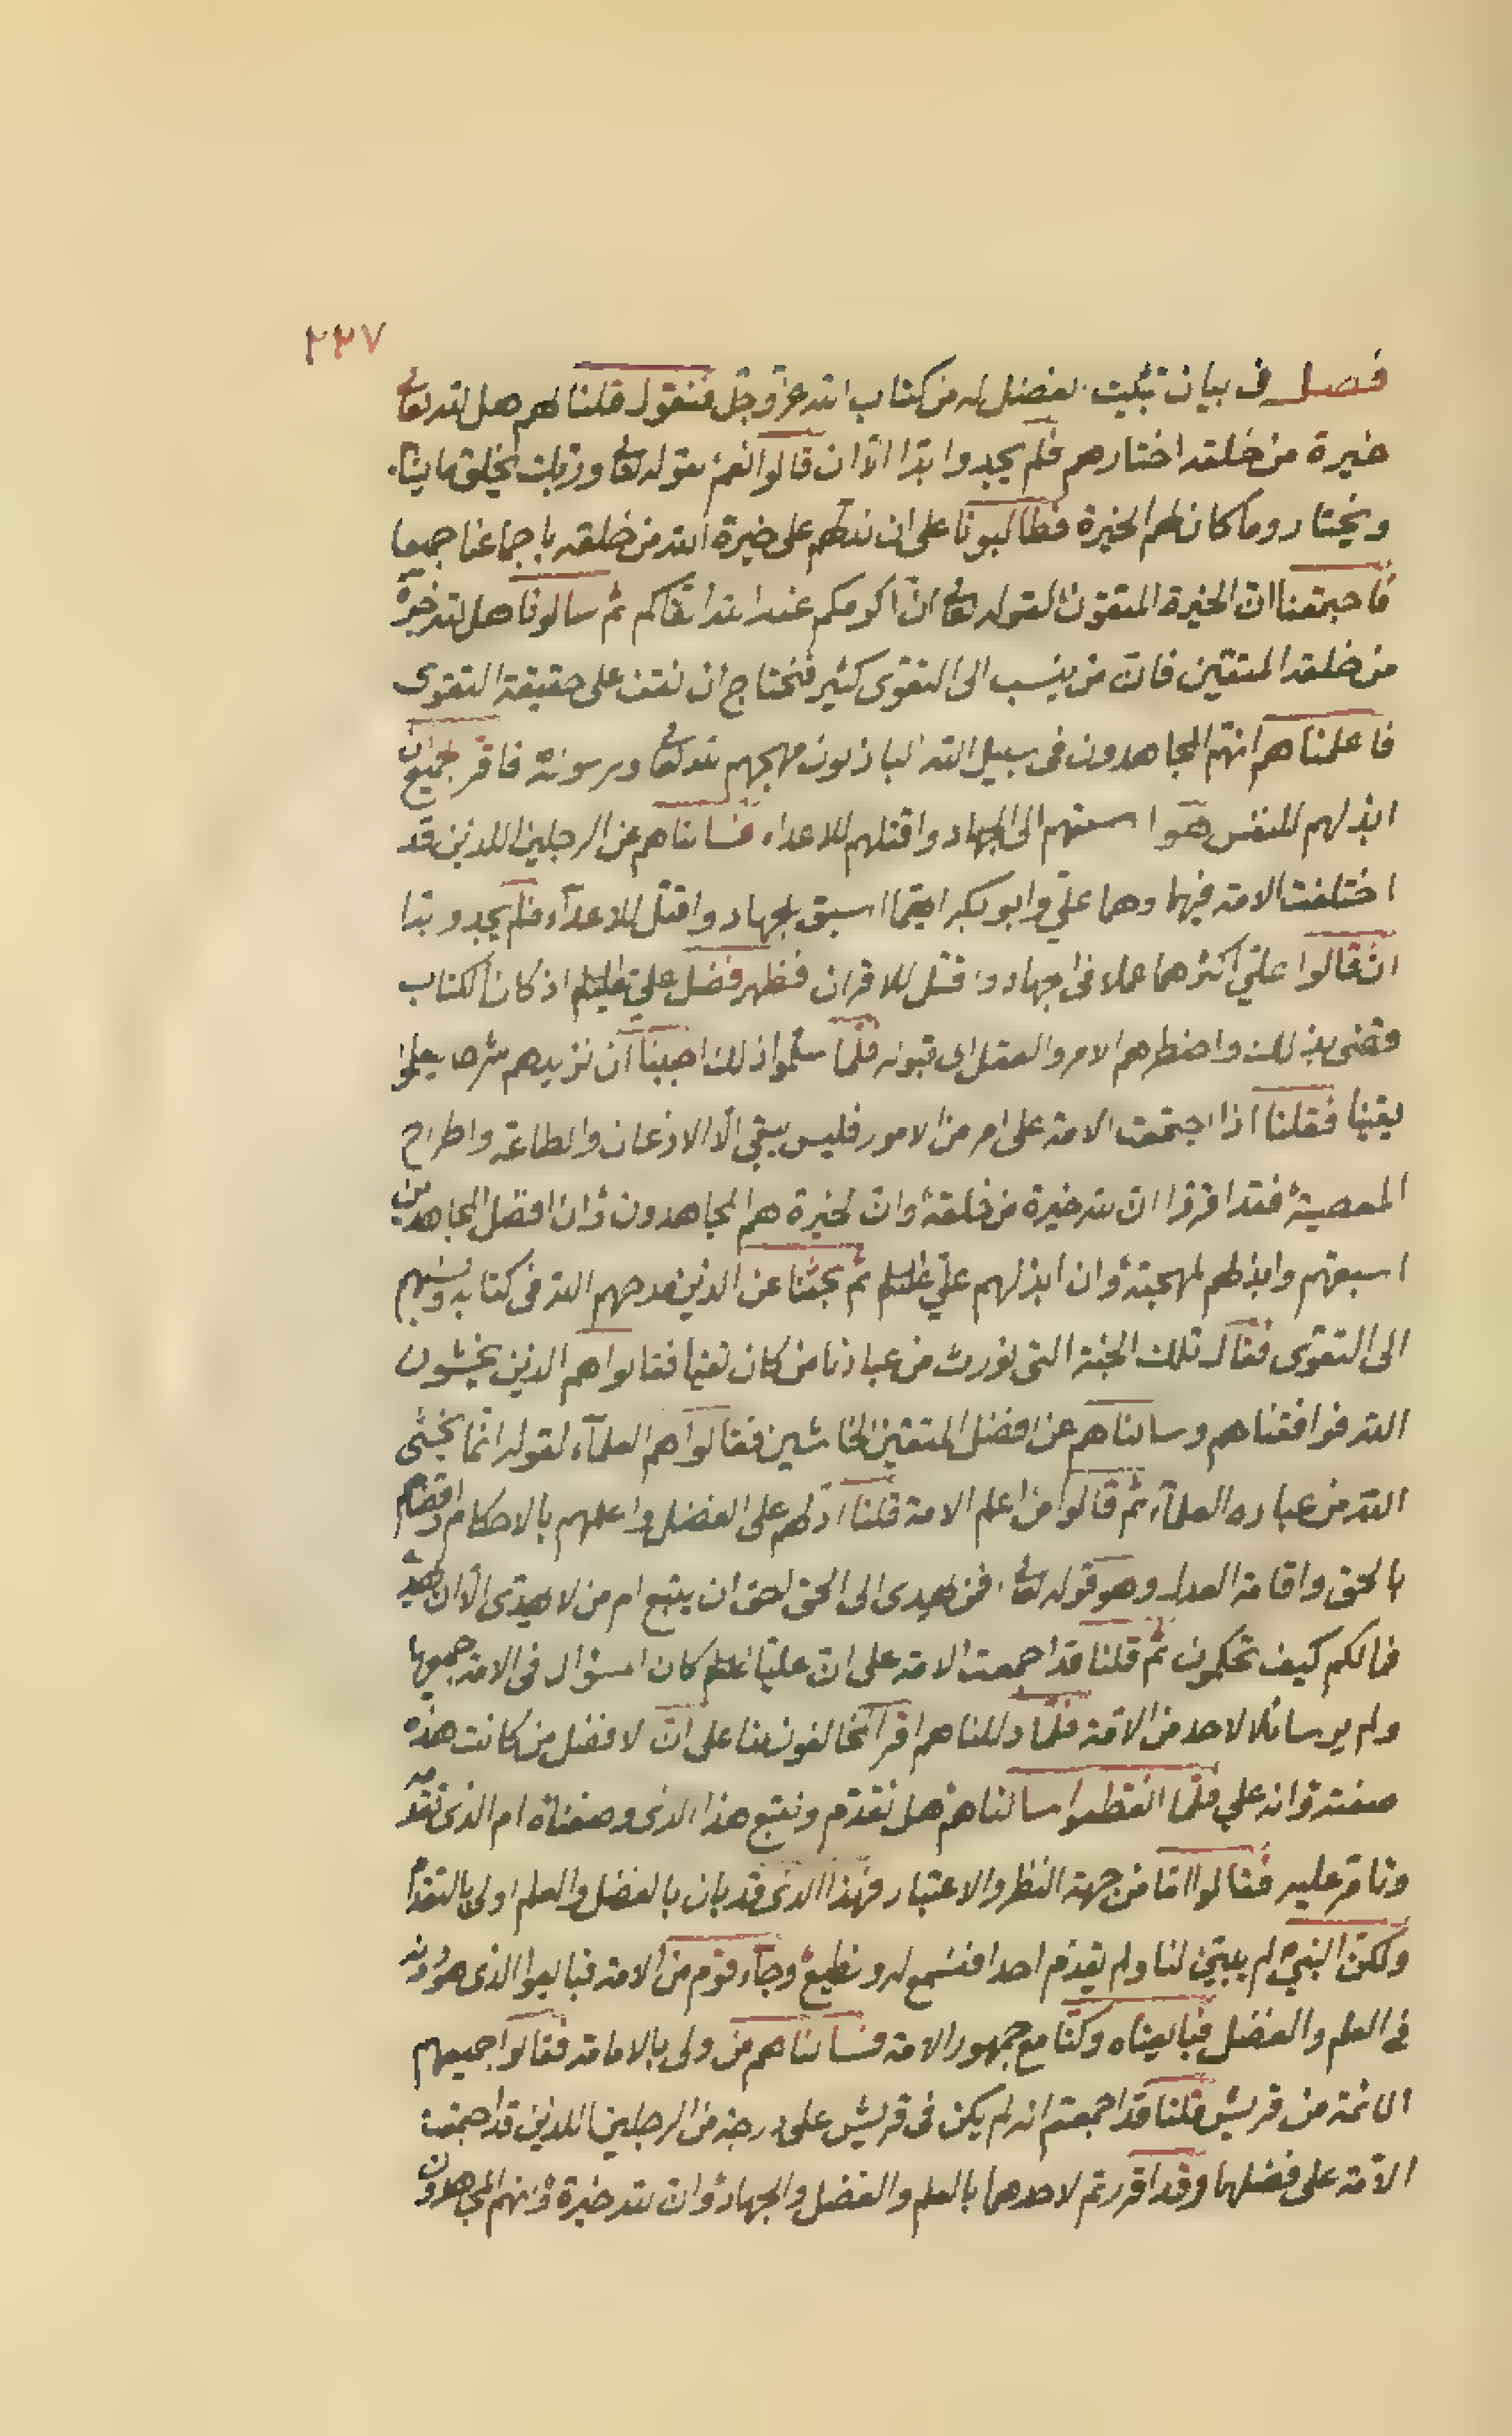 ٢٣٧
فصل في بيان تثبيت الفضل له من كتاب الله عز وجل فنقول قلنا لهم هل لله تعالى
خيرة من خلقه اختارهم فلم يجدوا بدا الا ان قالوا نعم بقوله تعالى وربك يخلق ما يشاء
ويختار وما كان لهم الخيرة فطالبونا على ان ندلهم على خيرة الله من خلقه باجماعنا جميعا
فاجمعنا ان الخيرة المتقون لقوله تعالى ان اكرمكم عند الله اتقاكم ثم سالونا هل لله خيرة
من خلقه المتقين فان من ينسب الى التقوى كثير فنحتاج ان نقف على حقيقة التقوى
فاعلمناهم انهم المجاهدون في سبيل الله الباذلون مهجهم لله تعالى ورسوله فاقر الجميع ان
ابذلهم للنفس هو اسبقهم الى الجهاد واقتلهم للاعداء فسالناهم عن الرجلين اللذين قد
اختلفت الامة فيهما وهما علي وابو بكر ايهما اسبق بجهاد واقتل للاعداء فلم يجدو بدا
ان قالوا علي اكثرهما عملا في جهاد واقتل للاقران فظهر فضل علي عليلم اذ كان الكتاب
قضى بذلك واضطرهم الامر والعقل الى قبوله فلما سلموا ذلك احببنا ان نزيدهم شرحا يعلموا
يقينا فقلنا اذا اجتمعت الامة على امر من الامور فليس يبقى الا الاذعان والطاعة واطراح
المعصية فقد اقروا ان لله خيرة من خلقه وان الخيرة هم المجاهدون وان افضل المجاهدين
اسبقهم وابذلهم لمهجته وان ابذلهم علي عليلم ثم بحثنا عن الذين مدحهم الله في كتابه ونسبهم
الى التقوى فقال تلك الجنة التي نورث من عبادنا من كان تقيا فقالوا هم الذين يخشون
الله فوافقناهم وسالناهم عن افضل المتقين الخاشين فقالوا هم العلمآء لقوله انما يخشى
الله من عباده العلمآء ثم قالوا من اعلم الامة قلنا ادلهم على الفضل واعلمهم بالاحكام واقضاهم
بالحق واقامة العدل وهو قوله تعالى افمن يهدى الى الحق احق ان يتبع ام من لا يهدى الا ان يهدى
فمالكم كيف تحكمون ثم قلنا قد اجمعت الامة على ان عليا عليلم كان السؤال في الامة جميعها
ولم ير سائلا لاحد من الامة فلما دللناهم اقر المخالفون لنا على ان لا فضل من كانت هذه
صفته وانه علي فلما انقطعوا سالناهم هل نقدم ونتبع هذا الذى وصفناه ام الذى تقدمه
وتامر عليه فقالوا اما من جهة النظر والاعتبار فهذا الذى قد بان بالفضل والعلم اولى بالتقدم
ولكن النبي لم يبين لنا ولم يقدم احدا فنسمع له ونطيع وجاء قوم من الامة فبايعوا الذى هو دونه
في العلم والفضل فبايعناه وكنا مع جمهور الامة فسالناهم من ولى بالامامة فقالوا جميعهم
الائمة من قريش قلنا قد اجمعتم انه لم يكن في قريش على درجة من الرجلين اللذين قد اجمعت
الامة على فضلهما وقد اقررتم لاحدهما بالعلم والفضل والجهاد وان لله خيرة وانهم المجاهدون